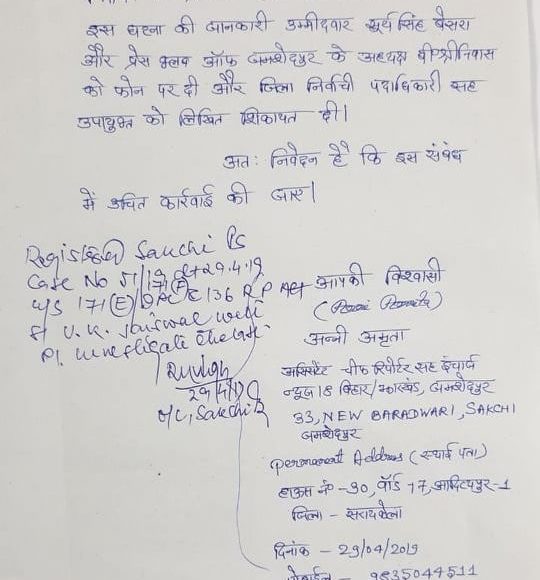 इस घटना की जानकारी उम्मीदवार सूर्य सिंह बेसरा
और प्रेस क्लब ऑफ जमशेदपुर के अध्यक्ष बी श्रीनिवास
को फोन पर दी और जिला निर्वाची पदाधिकारी सह
उपायुक्त को लिखित शिकायत दी।
अतः निवेदन है कि इस संबंध
में उचित कार्रवाई की जाए।
Sakchi PS
Case No 51/19 dt 29.4.19
u/s 171(E) 136 R P Act
V. K. Jaiswal will
Pl. investigate the case.
29/4/19
O/C, Sakchi PS
आपकी विश्वासी
अन्नी अमृता
असिस्टेंट चीफ रिपोर्टर सह इंचार्ज
न्यूज 18 बिहार/झारखंड, जमशेदपुर
33, NEW BARADWARI, SAKCHI
जमशेदपुर
permanent Address (स्थाई पता)
हाउस नं -90, वॉर्ड 17, आदित्यपुर-1
जिला - सरायकेला
दिनांक - 29/04/2019
मोबाईल - 9835044511